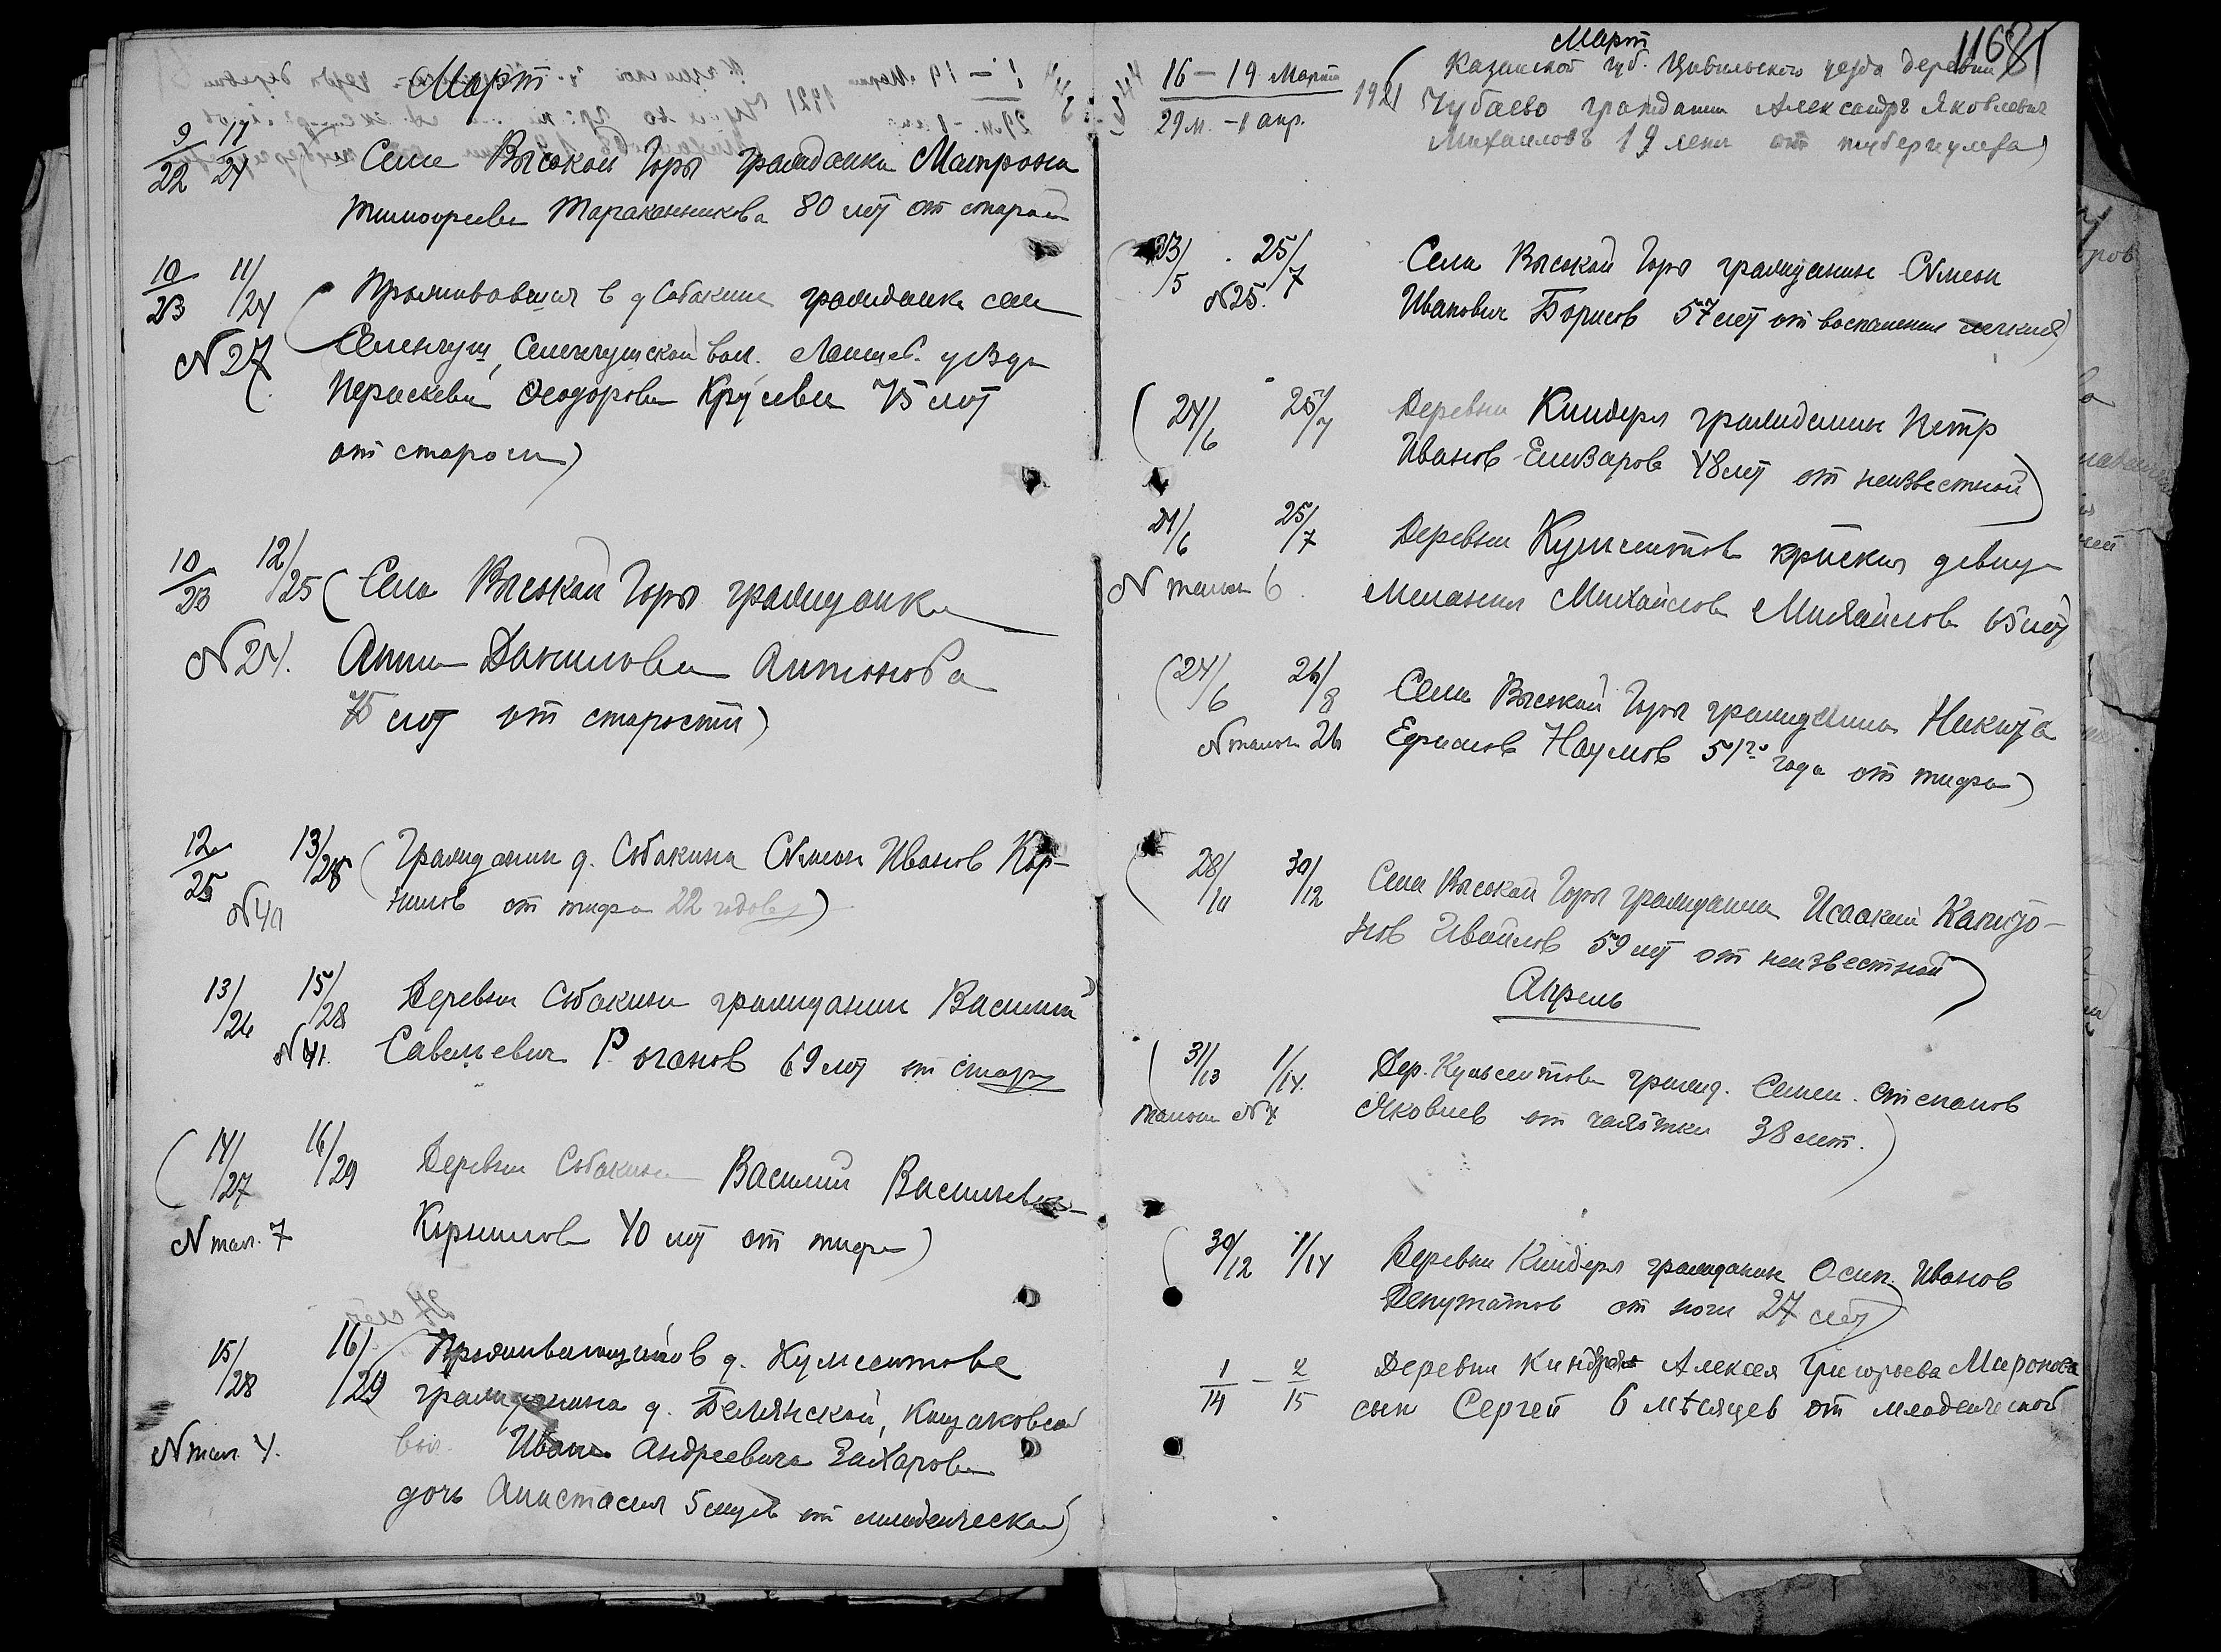 Март
9/22 11/24 Села Высокой Горы гражданка Матрона
Тимофреева Тараканникова 80 лет от старости
10/23 11/24 Проживавшая в д Собакине гражданка села
№ 27 Селенгуш, Селенгушской вол. Лаишев. уезда
Пераскева Феодорова 75 лет
от старости)
10/23 12/25 (Села Высокой Горы гражданка
№ 24. Анна Данилова Антонова
75 лет от старости)
12/25 13/26 (Гражданин д. Собакина Симеон Иванов Кор-
№ 40 нилов от тифа 22 годов)
13/26 15/28 Деревни Собакина гражданин Василий
№ 41. Савельевич Роганов 69 лет от стар
(14/27 16/29 Деревни Собакина Василий Васильев
№ тал. 7 Корнилов 40 лет от тифа)
15/28 16/29 (Проживающего в д. Кульсеитове
гражданина д. Белянской,
№ тал. 4. вол. Ивана Андреевича Захарова
дочь Анастасия 5 от младенческой)
1168
Март
16-19 Марта 1921 (Казанской губ. Цивильского уезда деревни
29 м. - 1 апр. Чубаево гражданин Александръ Яковлевич
Михаиловъ 19 лет от туберкулеза)
(23/5 25/7 Села Высокой Горы гражданин Симеон
№ 25. Иванович Борисов 57 лет от воспаления легких)
(24/6 25/7 Деревни Киндери гражданин Петр
Иванов Елизаров 48 лет от неизвестной)
24/6 25/7 Деревни Кульсеитов девица
№ талон 6. Мелания Михайлова Михайлова 65 лет
(24/6 26/8 Села Высокой Горы гражданин Никита
№ талон 26 Наумов 51го года от тифа)
(28/10 30/12 Села Высокой Горы гражданин Исаакий Капито-
нов Ивайлов 59 лет от неизвестной)
Апрель
(31/13 1/14. Дер. Кульсеитова гражд. Семен. Степанов
талон № 7 Яковлев от чахотки 38 лет.)
(30/12 1/14 Деревни Киндери гражданин Осип. Иванов
Депутатов от ноги 27 лет)
1/14 - 2/15 Деревни Киндери Алексея Григорьева Миронова
сын Сергей 6 мѣсяцев от младенческой